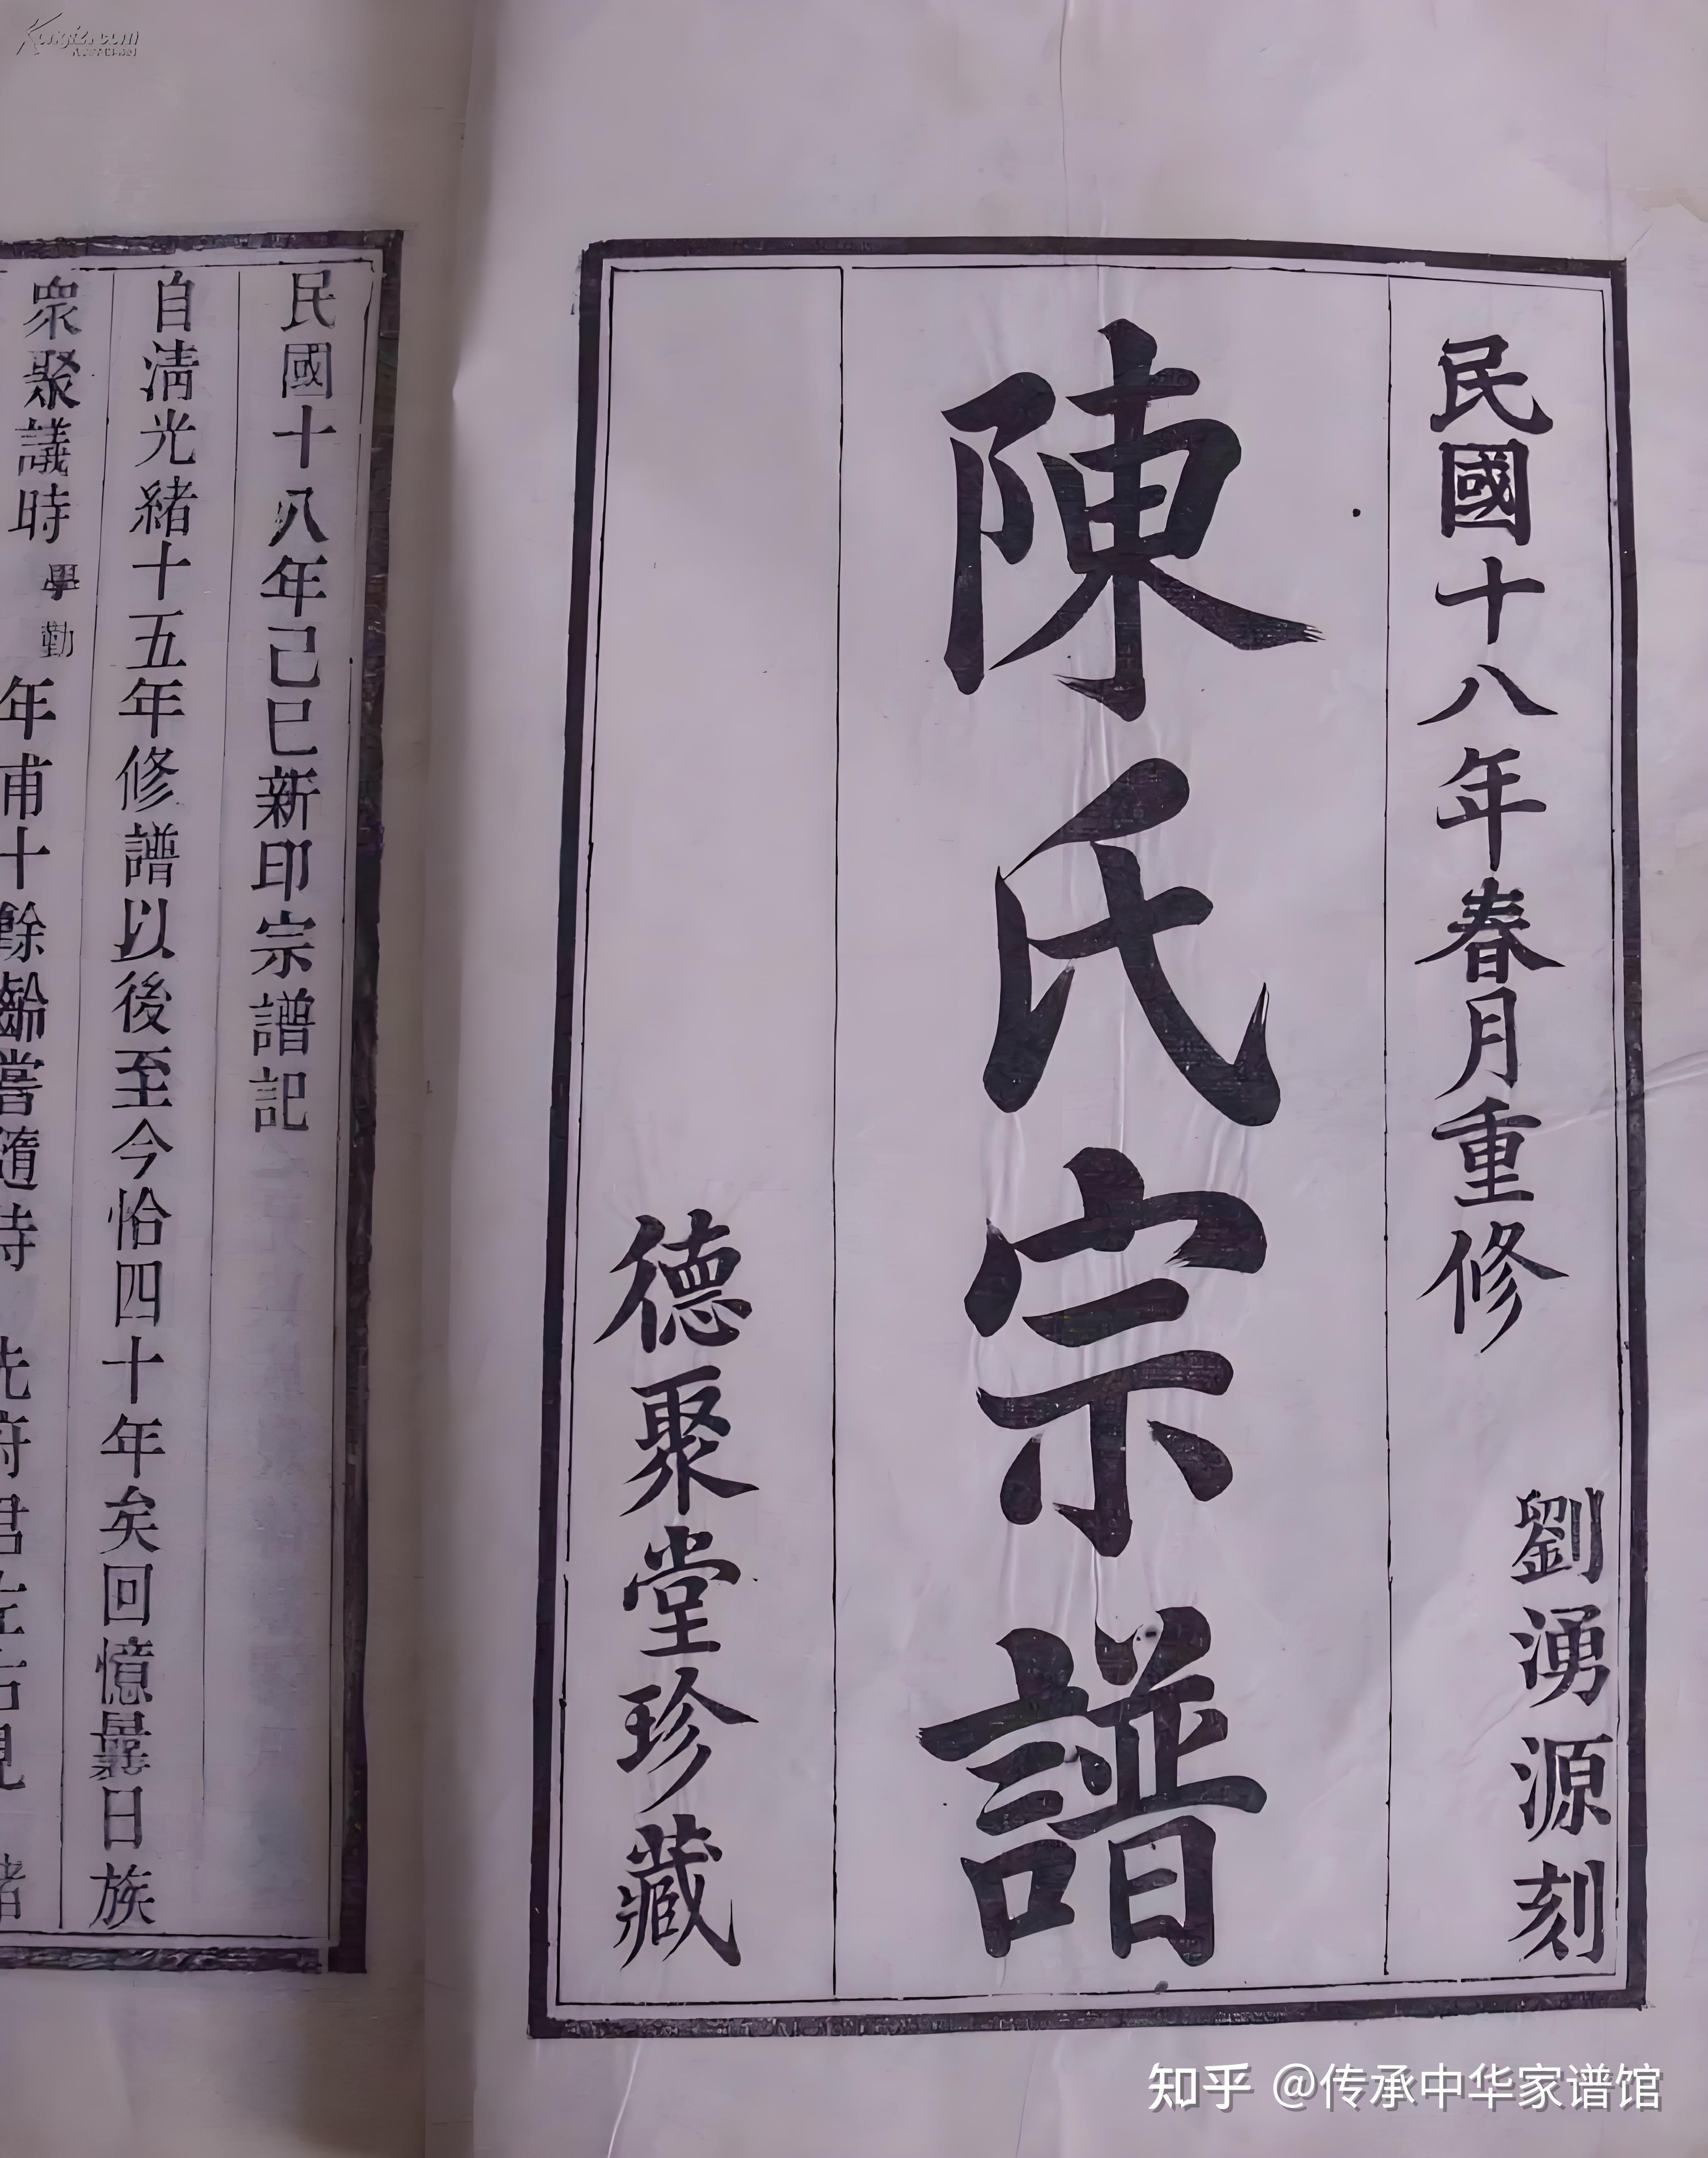 民國十八年春月重修
劉湧源刻
陳氏宗譜
德聚堂珍藏
民國十八年己巳新印宗譜記
自清光緒十五年修譜以後至今恰四十年矣回憶曩日族
眾聚議時學勤年甫十餘齡嘗隨侍 先府君左右見 諸
知乎 @传承中华家谱馆